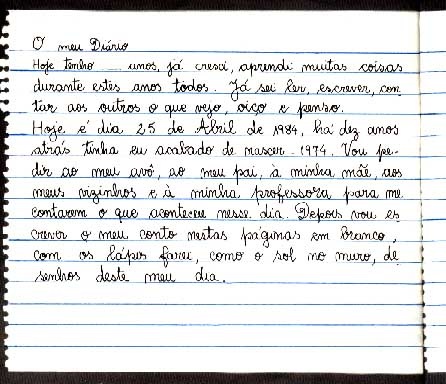 O meu Diário
Hoje tenho ___ anos, já cresci, aprendi muitas coisas
durante estes anos todos. Já sei ler, escrever, con
tar aos outros o que vejo, oiço e penso.
Hoje é dia 25 de Abril de 1984, há dez anos
atrás tinha eu acabado de nascer - 1974. Vou pe-
dir ao meu avô, ao meu pai, à minha mãe, aos
meus vizinhos e à minha professora para me
contarem o que aconteceu nesse dia. Depois vou es
crever o meu conto nestas páginas em branco,
com os lápis farei, como o sol no muro, de
senhos deste meu dia.